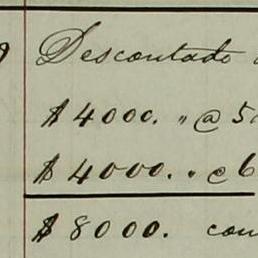 Descontado
$ 4000. " @ 5
$ 4000. " @ 6
$ 8000. con